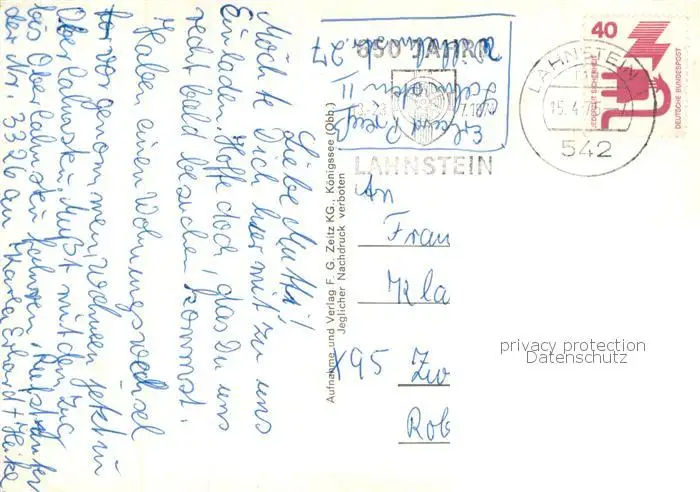 Liebe Mutti!
Möchte Dich hiermit zu uns
Einladen, Hoffe doch, das Du uns
recht bald besuchen kommst.
Haben einen Wohnungswechsel
vorgenommen, wohnen jetzt in
Oberlahnstein, Mußt mit dem Zug
bis Oberlahnstein fahren,
der Nr. 3326 an
Erhard + Heike
Aufnahme und Verlag F. G. Zeitz KG., Königssee (Obb.)
Jeglicher Nachdruck verboten
Lahnstein II
27
650 JAHRE
LAHNSTEIN
LAHNSTEIN
15.4.
542
40
JEDERZEIT SICHERHEIT
DEUTSCHE BUNDESPOST
An
Frau
Kla
X95 Zw
Rob
privacy protection
Datenschutz